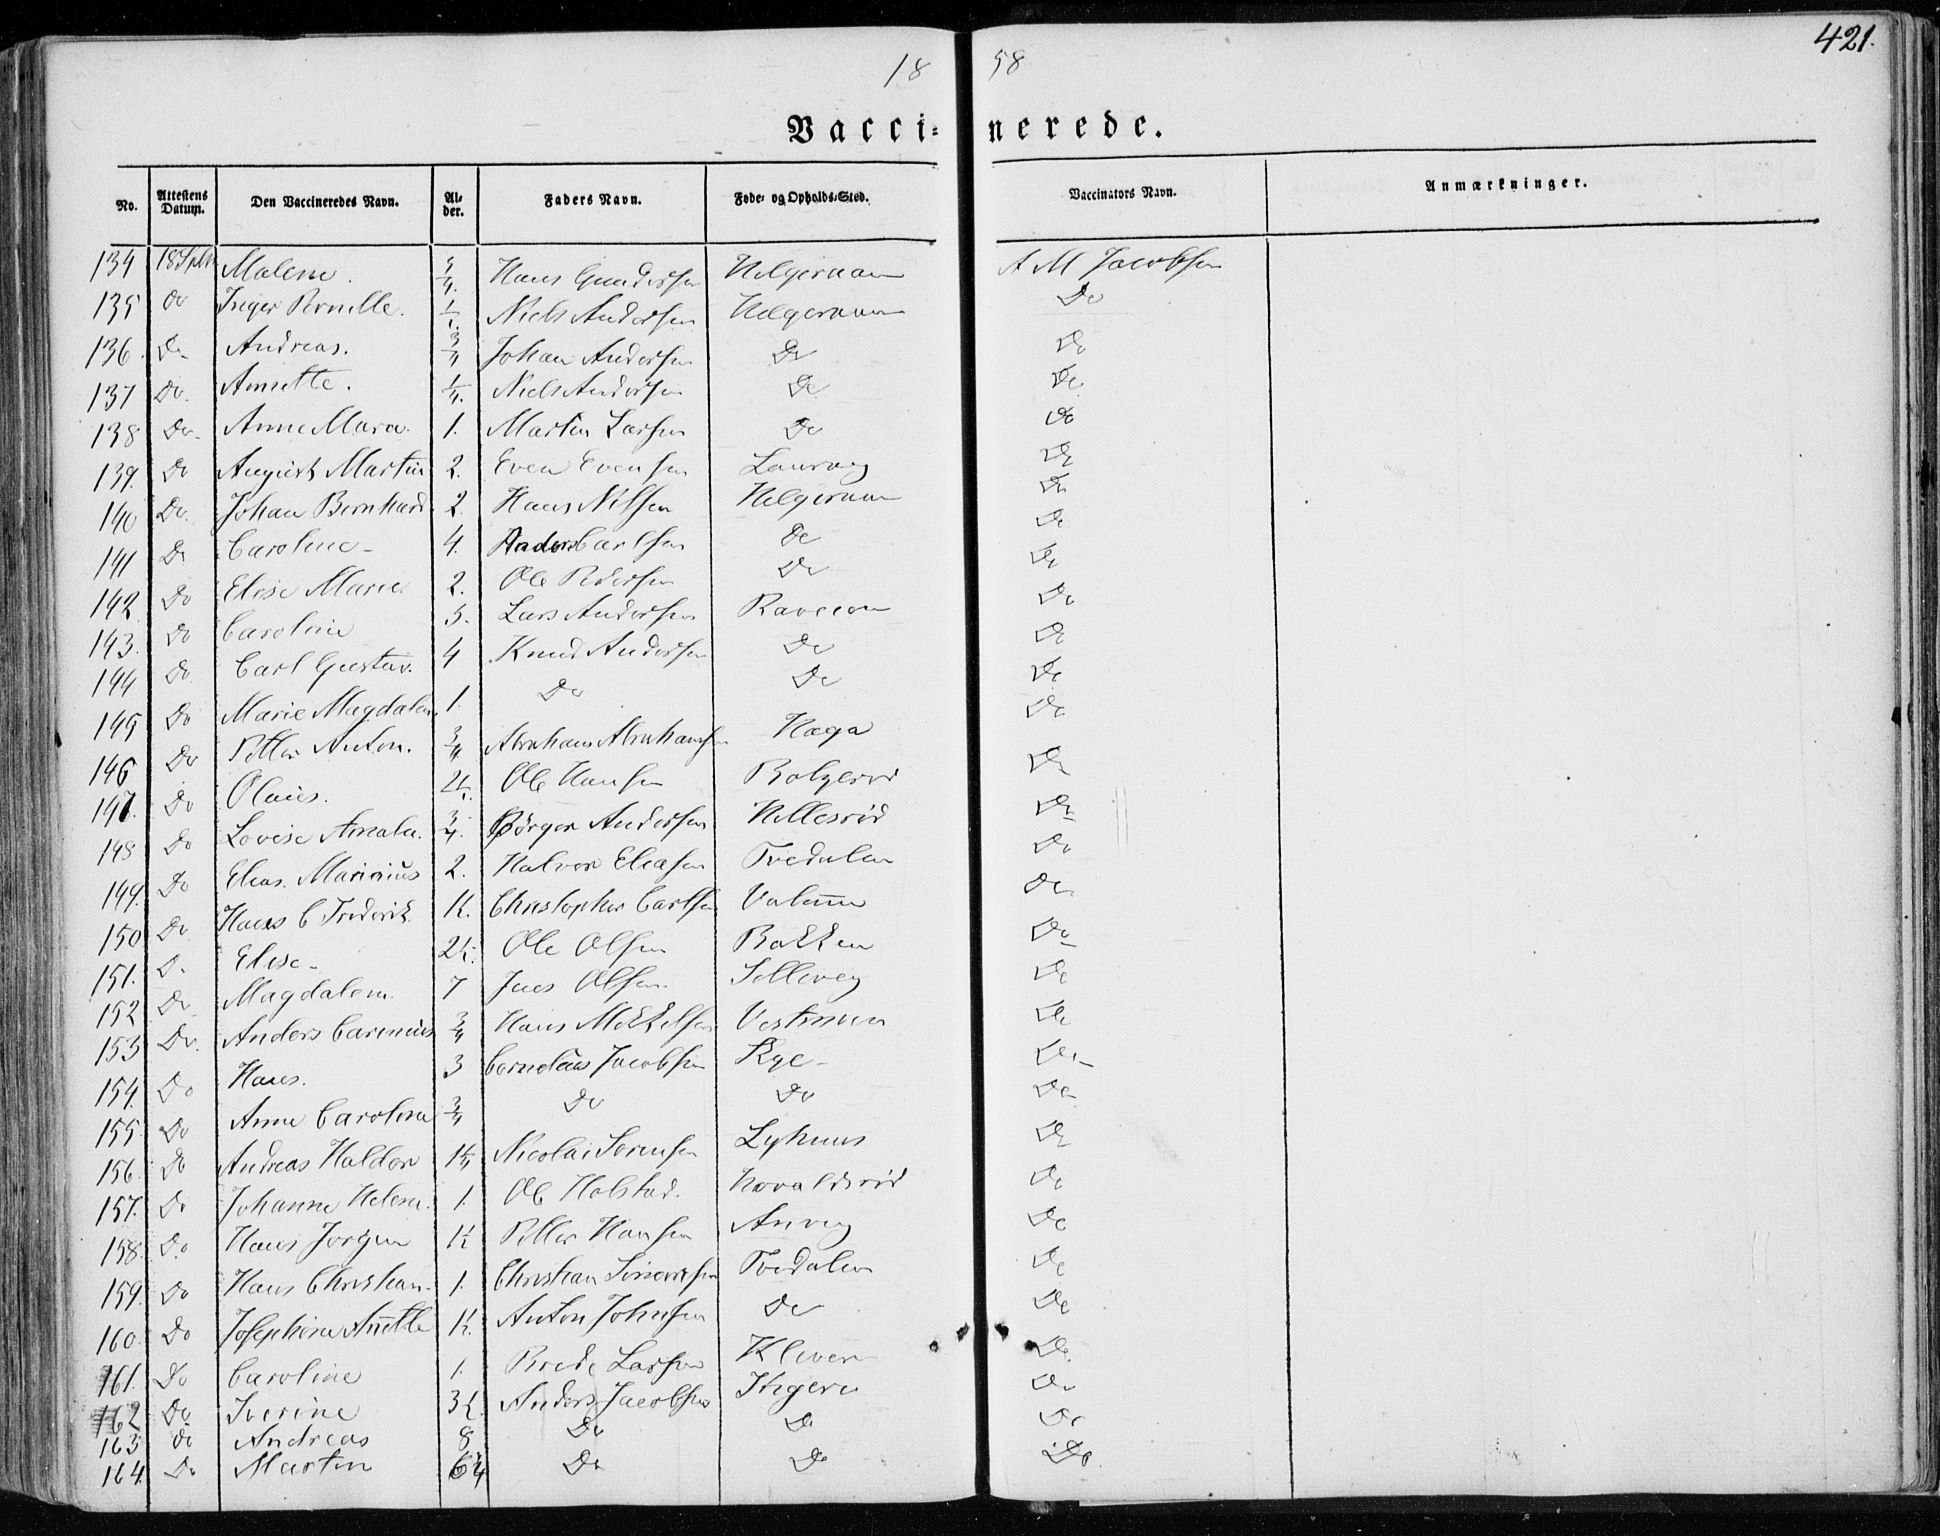 421.
18 58
Vacci= nerede.
No. Attestens Datum. Den Vaccineredes Navn. Al= der. Faders Navn. Føde= og Opholds=Sted. Vaccinators Navn. Anmærkninger.
134 18 Septbr Malene. 3/4. Hans Gundersen Helgeroaen A M Jacobsen
135 Do Inger Pernille. Niels Andersen Helgeroaen Do
136. Do Andreas. 3/4 Johan Andersen Do Do
137 Do. Annette. 1/4. Niels Andersen Do Do
138 Do. Anne Marie. 1. Martin Larsen Do Do
139. Do August Martin 2. Even Evensen Laurvig Do
140 Do. Johan Bernhard 2. Hans Nilsen Helgeroaen Do
141 Do Caroline 4. Anders Carlsen Do Do
142 Do Elise Marie 2. Ole Pedersen Do Do
143. Do Caroline 5. Lars Andersen Raveien Do
144 Do Carl Gustav. 4 Knud Andersen Do Do
145 Do Marie Magdalene 1. Do Do Do
146 Do Petter Anton. 3/4 Abraham Abrahamsen Haga Do
147. Do Olaus. Ole Hansen Do
148 Do Lovise Amalie. 3/4. Børger Andersen Hellesrød Do
149. Do Elias Marinius 2. Halvor Eliasen Tvedalen Do
150 Do Hans C Frederik 1½. Christopher Carlsen Do
151. Do Elise 2½. Ole Olsen Bakken Do
152 Do Magdalene. 7 Jens Olsen. Do
153 Do. Anders Carenius 3/4 Hans Mikkelsen Do
154. Do Hans. 3 Cornelius Jacobsen Rye Do
155 Do Anne Caroline 3/4 Do Do Do
156. Do Andreas Haldor 1¼ Nicolai Sørensen Do
157. Do Johanne Helene. 1. Ole Holstad. Do
158 Do Hans Jørgen 1½ Petter Hansen Anvig Do
159. Do Hans Christian. 1. Christian Tvedalen Do
160. Do Josephine Annette 1½. Anton Johnsen Do Do
161. Do Caroline 1. Brede Larsen Do
162 Do Iverine 3½. Anders Jacobsen Do
163 Do Andreas 8 Do Do Do
164. Do Martin Do Do Do